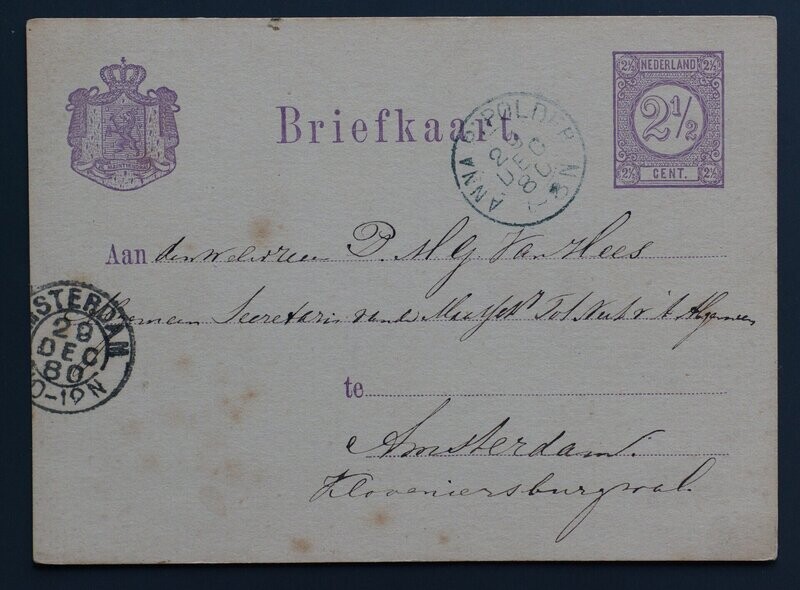 Briefkaart
2½ NEDERLAND 2½
2½
2½ CENT. 2½
ANNA P. POLDER
DEC
80
Aan den Weledelen D. M. G. Van Hees
Algemeen Secretaris van de Maatschr Tot Nut v 't Algemeen
AMSTERDAM
28
DEC
80
10-12N
te
Amsterdam.
Kloveniersburgwal.